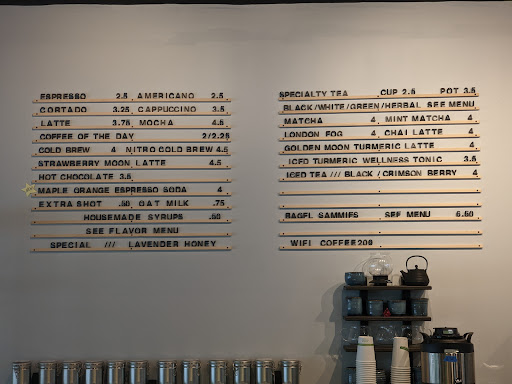 ESPRESSO 2.5 AMERICANO 2.5
CORTADO 3.25 CAPPUCCINO 3.5
LATTE 3.75 MOCHA 4.5
COFFEE OF THE DAY 2/2.25
COLD BREW 4 NITRO COLD BREW 4.5
STRAWBERRY MOON LATTE 4.5
HOT CHOCOLATE 3.5
MAPLE ORANGE ESPRESSO SODA 4
EXTRA SHOT .50 OAT MILK .75
HOUSEMADE SYRUPS .50
SEE FLAVOR MENU
SPECIAL /// LAVENDER HONEY
SPECIALTY TEA CUP 2.5 POT 3.5
BLACK/WHITE/GREEN/HERBAL SEE MENU
MATCHA 4 MINT MATCHA 4
LONDON FOG 4 CHAI LATTE 4
GOLDEN MOON TURMERIC LATTE 4
ICED TURMERIC WELLNESS TONIC 3.5
ICED TEA /// BLACK / CRIMSON BERRY 4
BAGEL SAMMIES SEE MENU 6.50
WIFI COFFEE209